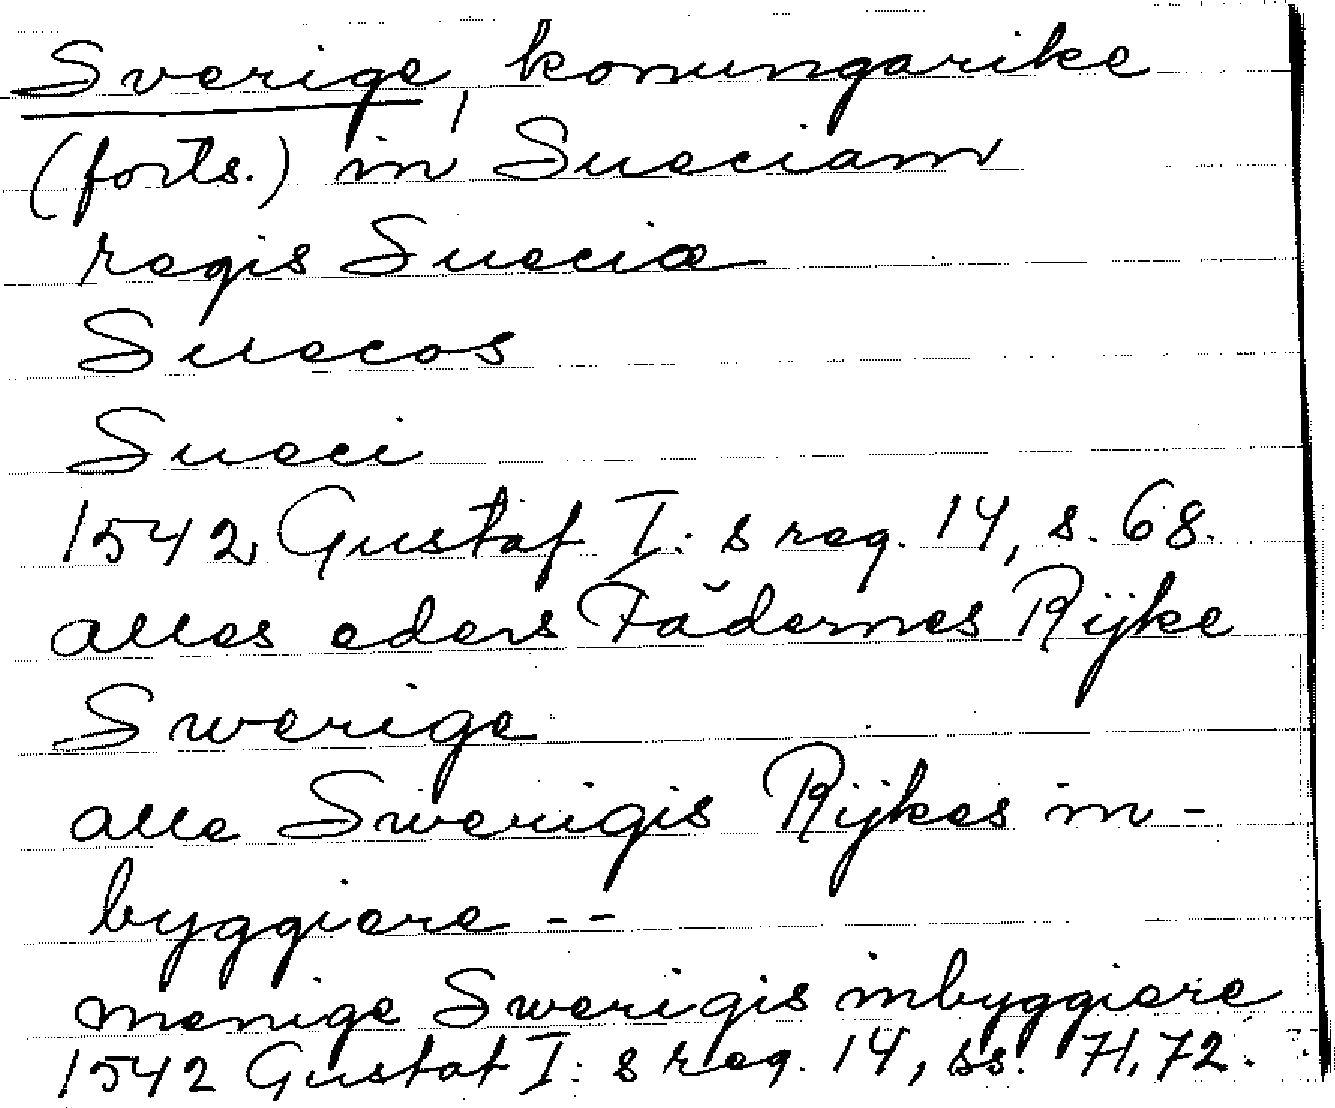 Sverige, konungarike
(forts.) in Sueciam
regis Sueciæ
Suecos
Sueci
1542 Gustaf I:s reg. 14, s. 68.
alles eders Fädernes Rijke
Swerige
alle Swerigis Rijkes in-
byggiere --
menige Swerigis inbyggiere
1542 Gustaf I:s reg. 14, ss. 71, 72.